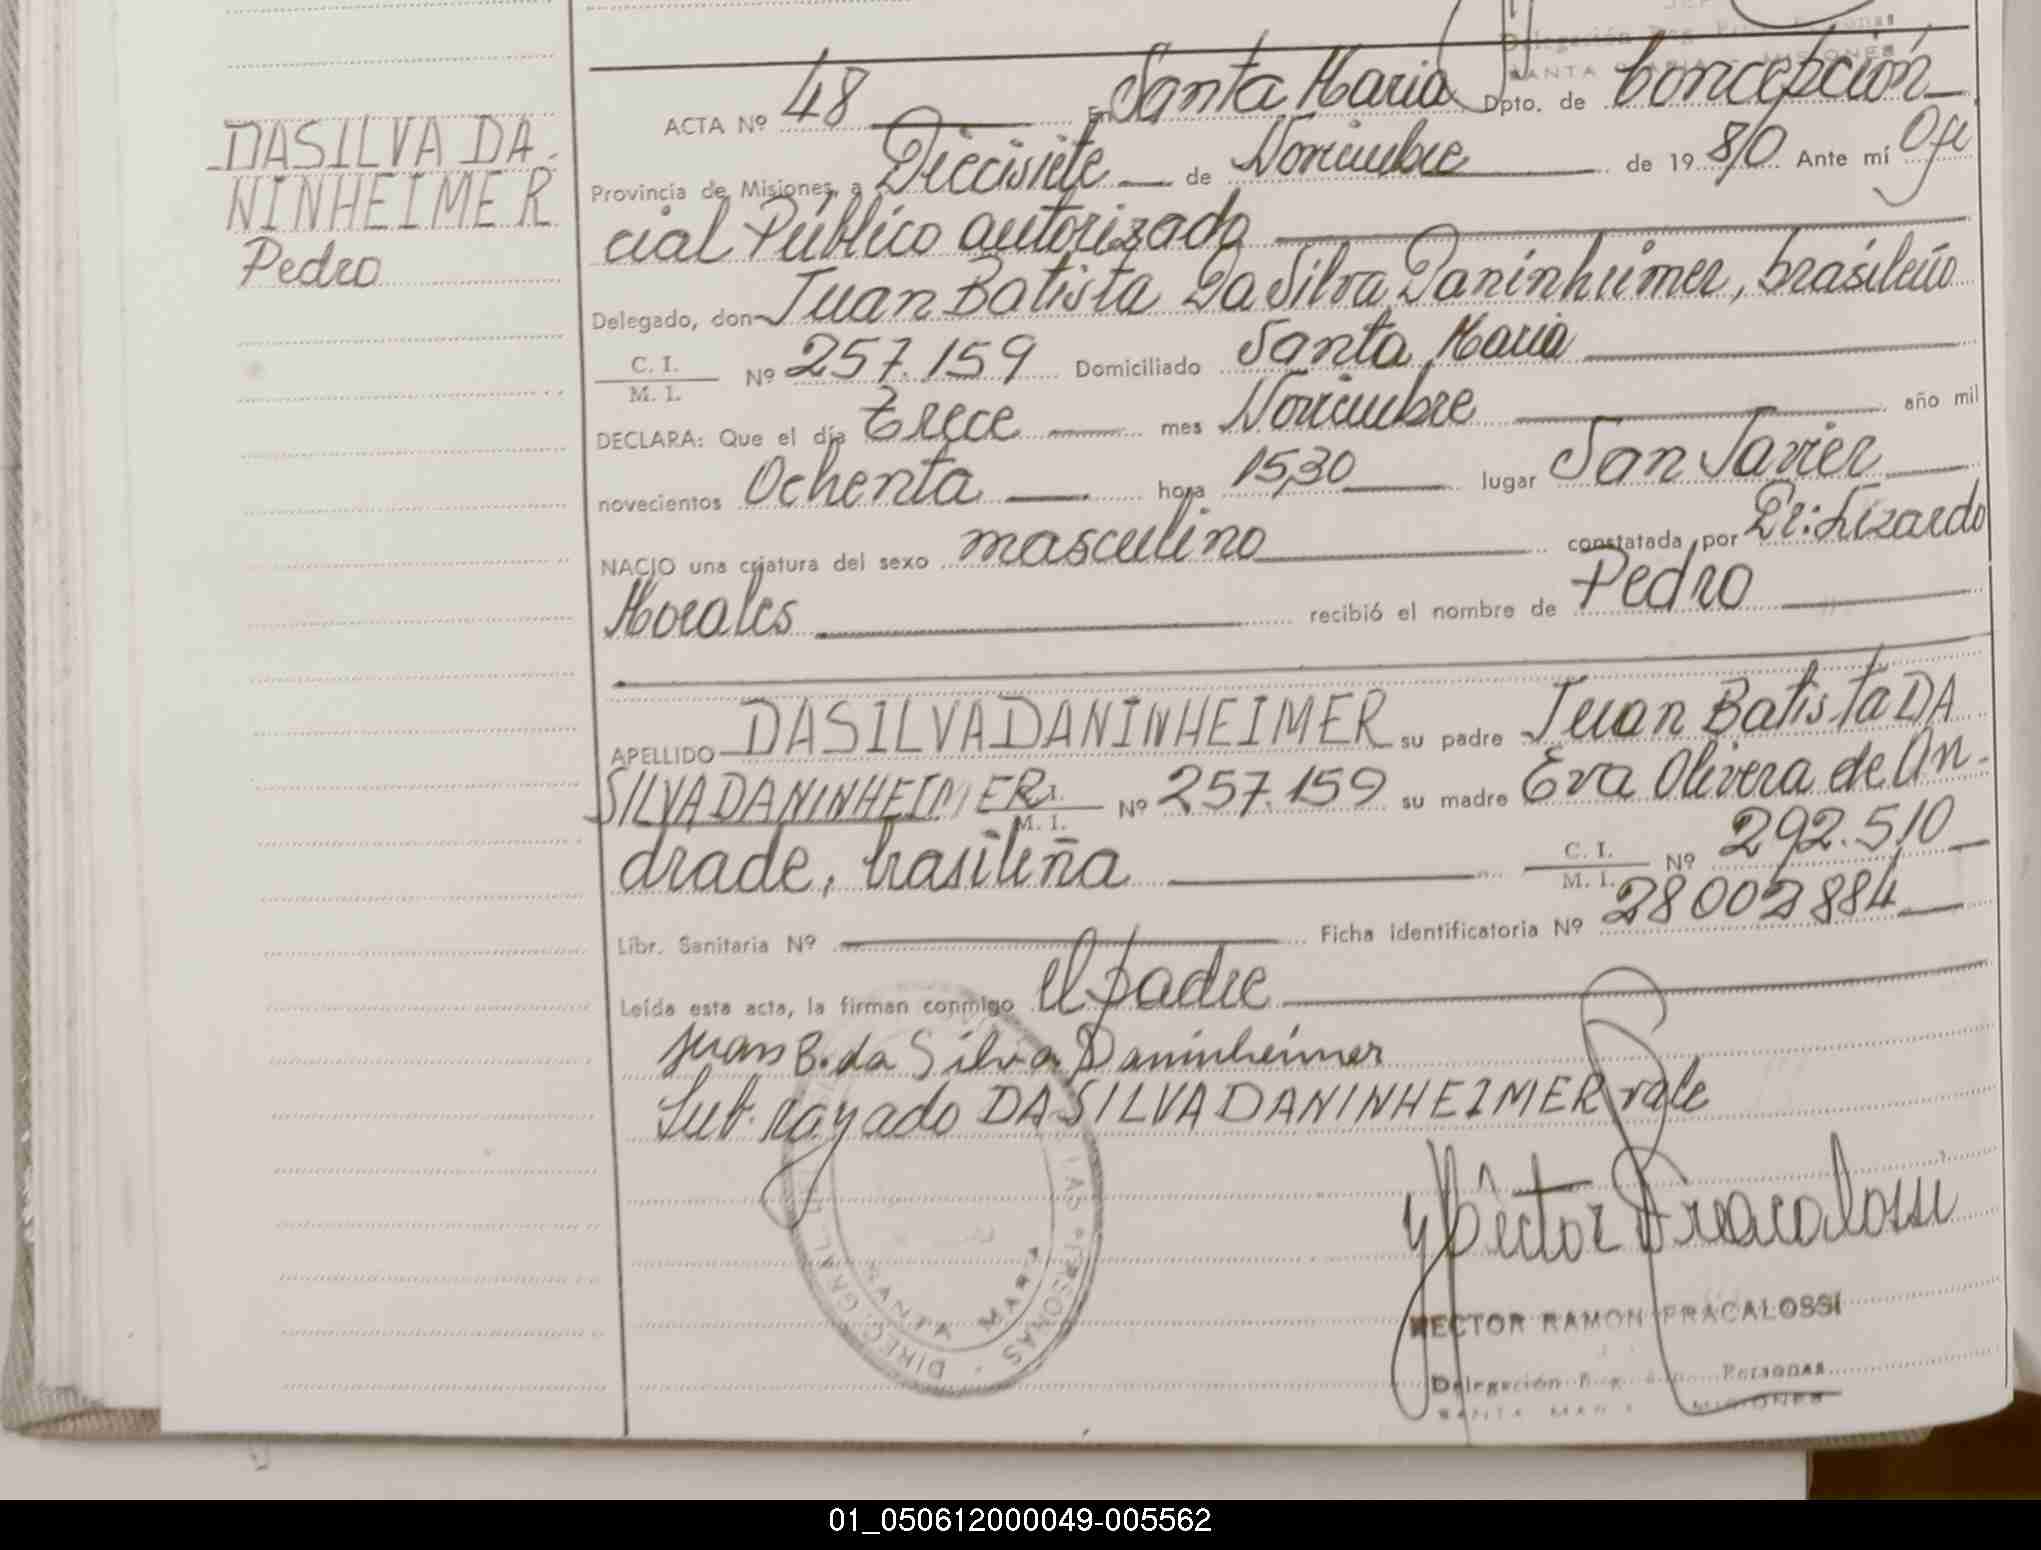 DASILVA DA
NINHEIMER
Pedro
ACTA Nº 48 En Santa Maria Dpto. de Concepción
Provincia de Misiones, a Diecisiete de Noviembre de 1980 Ante mí Ofi
cial Público autorizado
Delegado, don Juan Batista Da Silva Daninheimer, brasileño
C. I.
M. I. Nº 257.159 Domiciliado Santa Maria
DECLARA: Que el día Trece mes Noviembre año mil
novecientos Ochenta hora 15,30 lugar San Javier
NACIO una criatura del sexo masculino constatada por Dr: Lizardo
Morales recibió el nombre de Pedro
APELLIDO DASILVADANINHEIMER su padre Juan Batista DA
SILVADANINHEIMER C. I. M. I. Nº 257.159 su madre Eva Olivera de An-
drade, brasileña C. I. M. I. Nº 292.510
Libr. Sanitaria Nº Ficha identificatoria Nº 28002884
Leída esta acta, la firman conmigo el padre
Juan B. da Silva Daninheimer
Sub-rayado DASILVADANINHEIMER vale
Hector R Fracalossi
HECTOR RAMON FRACALOSSI
Delegación Personas
SANTA MARIA MISIONES
DIREC. GRAL. LAS PERSONAS
SANTA MARIA
01_050612000049-005562